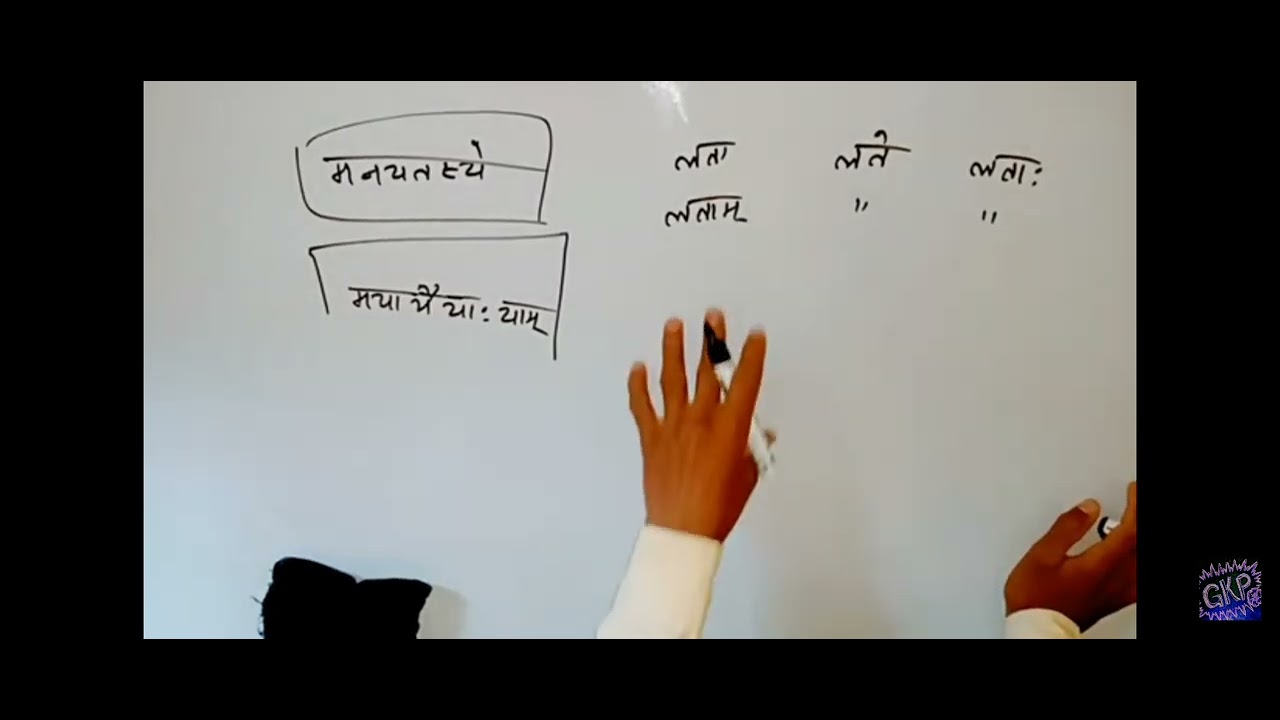 म न य त स्ये
मया यै याः याम्
लता लते लताः
लताम् " "
GKP